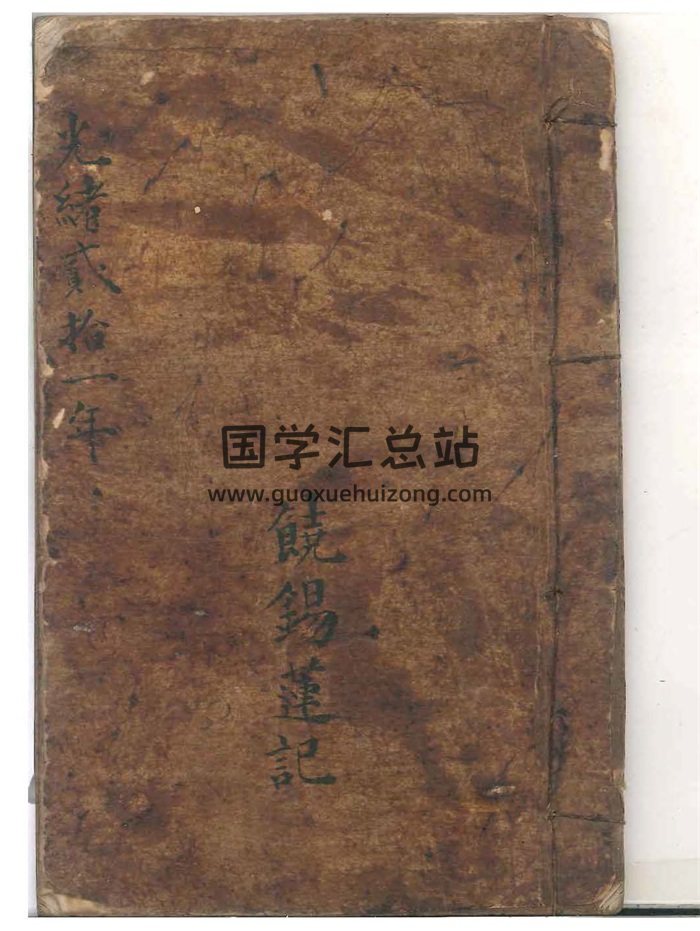 光緒貳拾一年
饒錫蓮記
国学汇总站
www.guoxuehuizong.com